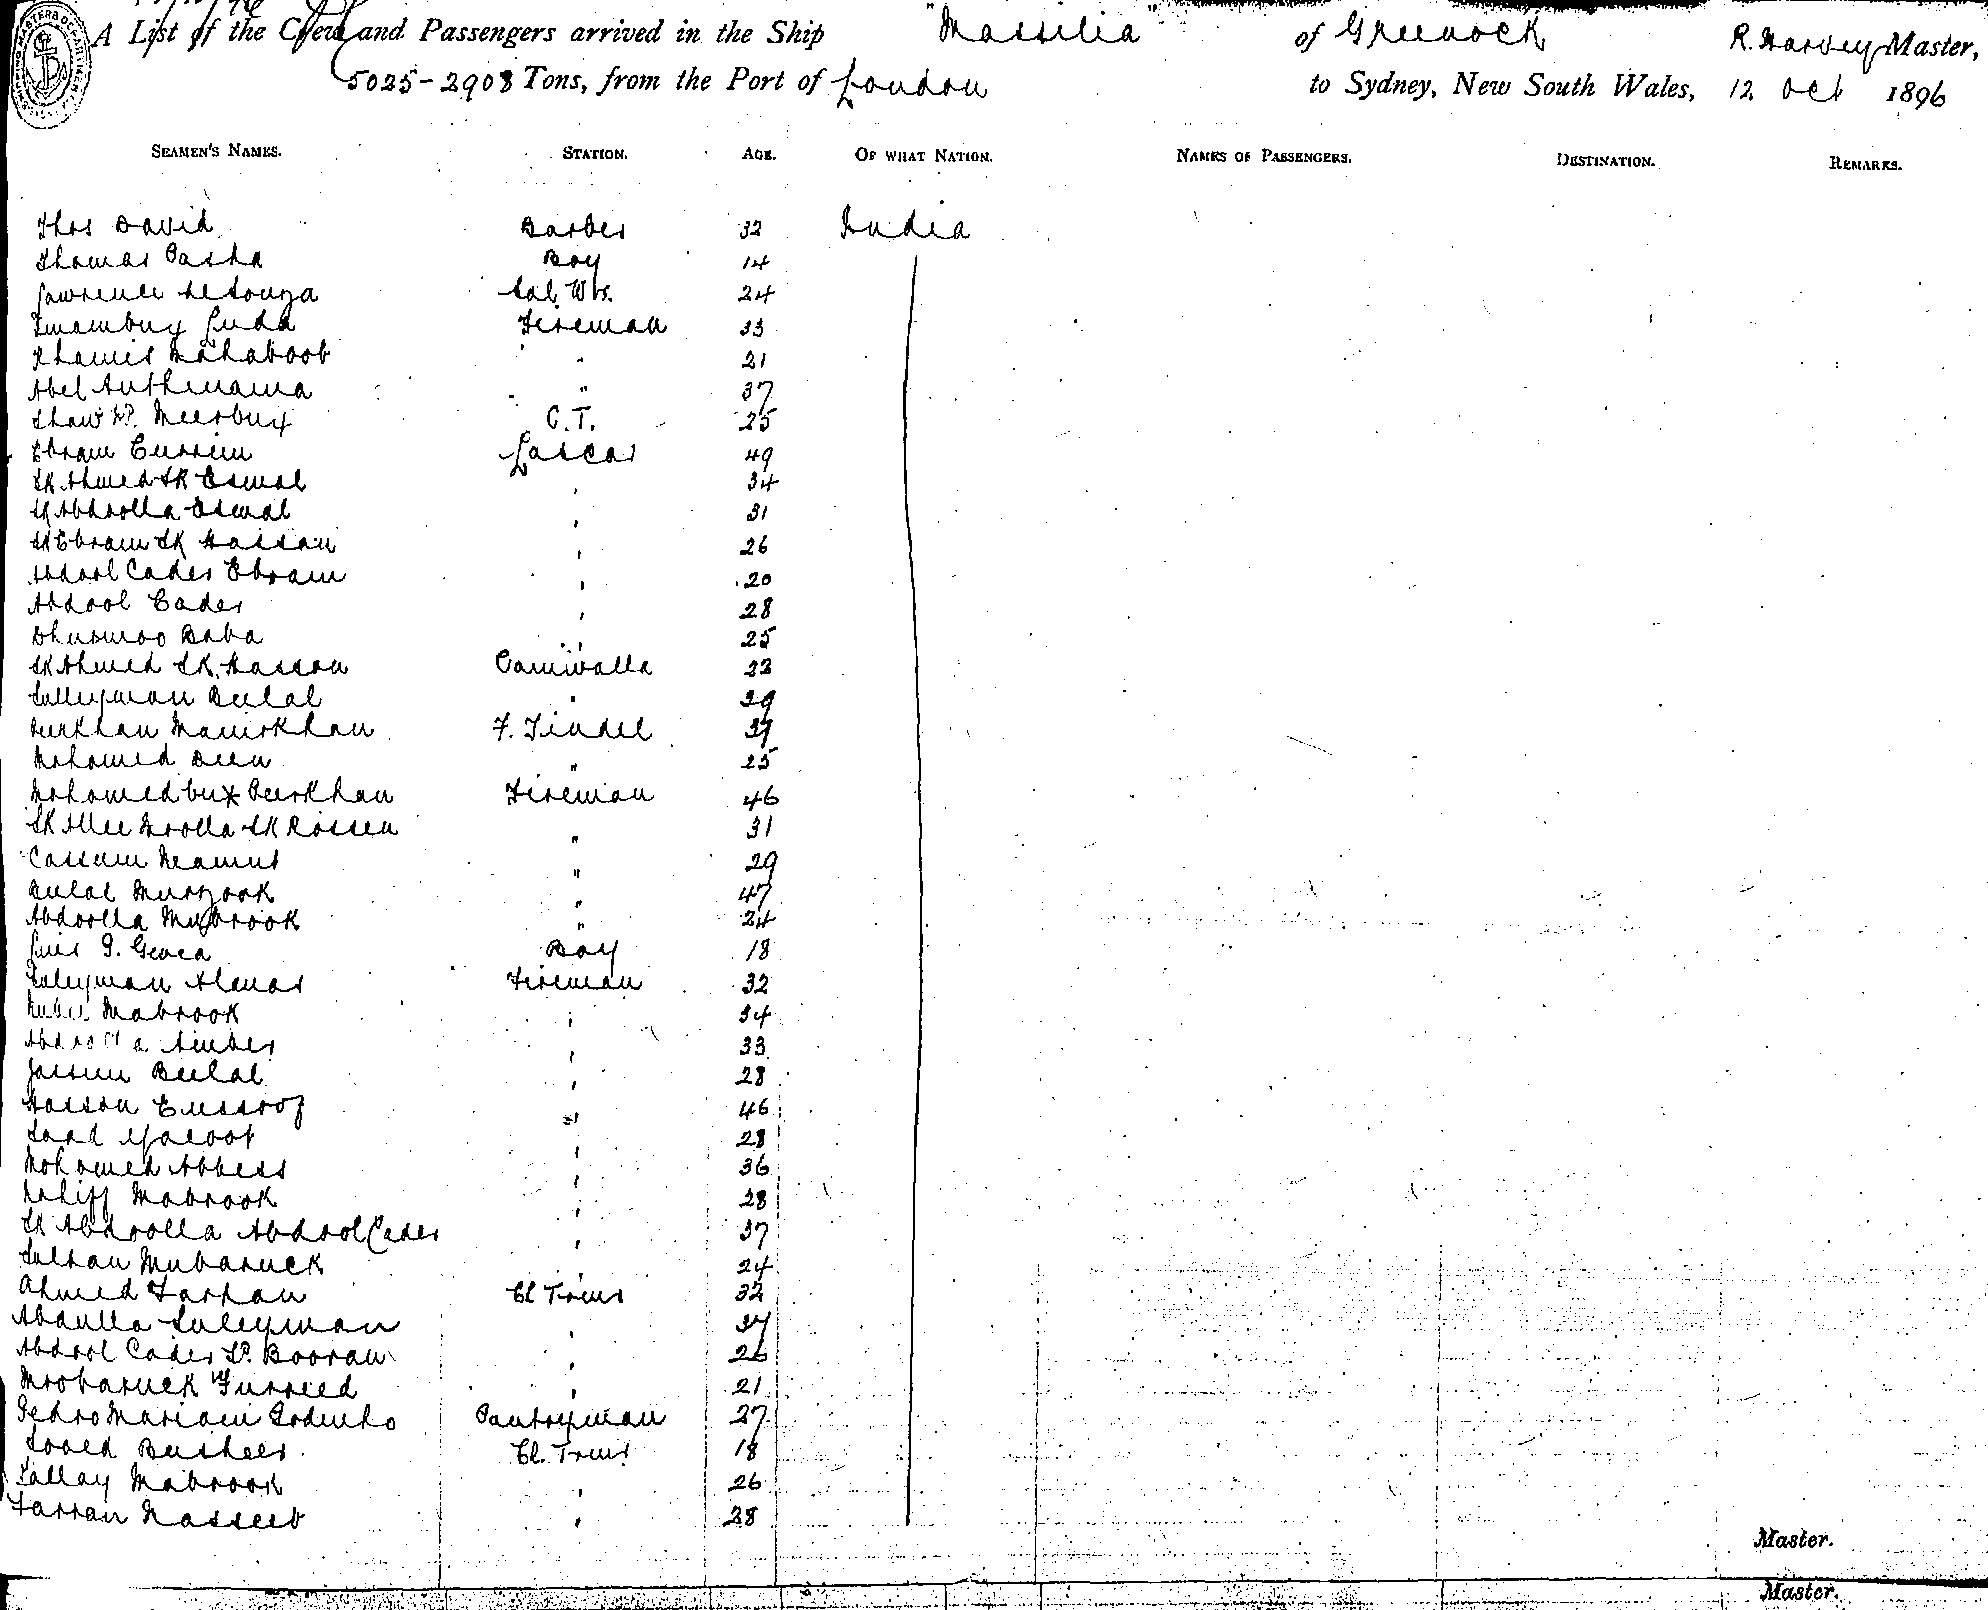 A List of the Crew and Passengers arrived in the Ship "Massilia" of Greenock R. Harvey Master,
5025-2908 Tons, from the Port of London to Sydney, New South Wales, 12 Oct 1896
SEAMEN'S NAMES. STATION. AGE. OF WHAT NATION. NAMES OF PASSENGERS. DESTINATION. REMARKS.
Thos David Barber 32 India
Thomas Pasha Boy 14
Lawrence deSouza Sal. Wtr. 24
Imambux Juda Fireman 33
Khamis Mahaboob " 21
Abel " 37
Meerbux C.T. 25
Ebram Currim Lascar 49
Sk Ahmed Sk Esmal " 34
Sk Abdoolla Esmal " 31
Sk Ebram Sk Hassan " 26
Abdool Cader Ebram " 20
Abdool Cader " 28
Dhurmoo Baba " 25
Sk Ahmed Sk. Hassan 22
Sulleyman Beelal " 29
Peerkhan Manirkhan F. Tindel 37
Mohomed Deen " 25
Mohomedbux Peerkhan Fireman 46
Sk Allee Moolla Sk Rossen " 31
Cassum " 29
Bulal Murzook " 47
Abdoolla Mubrook " 24
Luis Boy 18
Suleyman Almas Fireman 32
Mabrook " 34
Abdoolla Amber " 33
Jassum Beelal " 28
Hassan Eussoof " 46
Saad Yacoob " 28
Mohomed Abbess " 36
Mabrook " 28
Sk Abdoolla Abdool Cader " 37
Sultan Mubaruck " 24
Ahmed Farhan Cl Trmr 32
Abdulla Suleyman " 37
Abdool Cader Sd. Booran " 26
Moobaruck Furreed " 21
Pedro Mariam Godinho Pantryman 27
Sooed Basheer Cl. Trmr 18
Sallay Mabrook " 26
Farran Nasseeb " 28
Master.
Master.